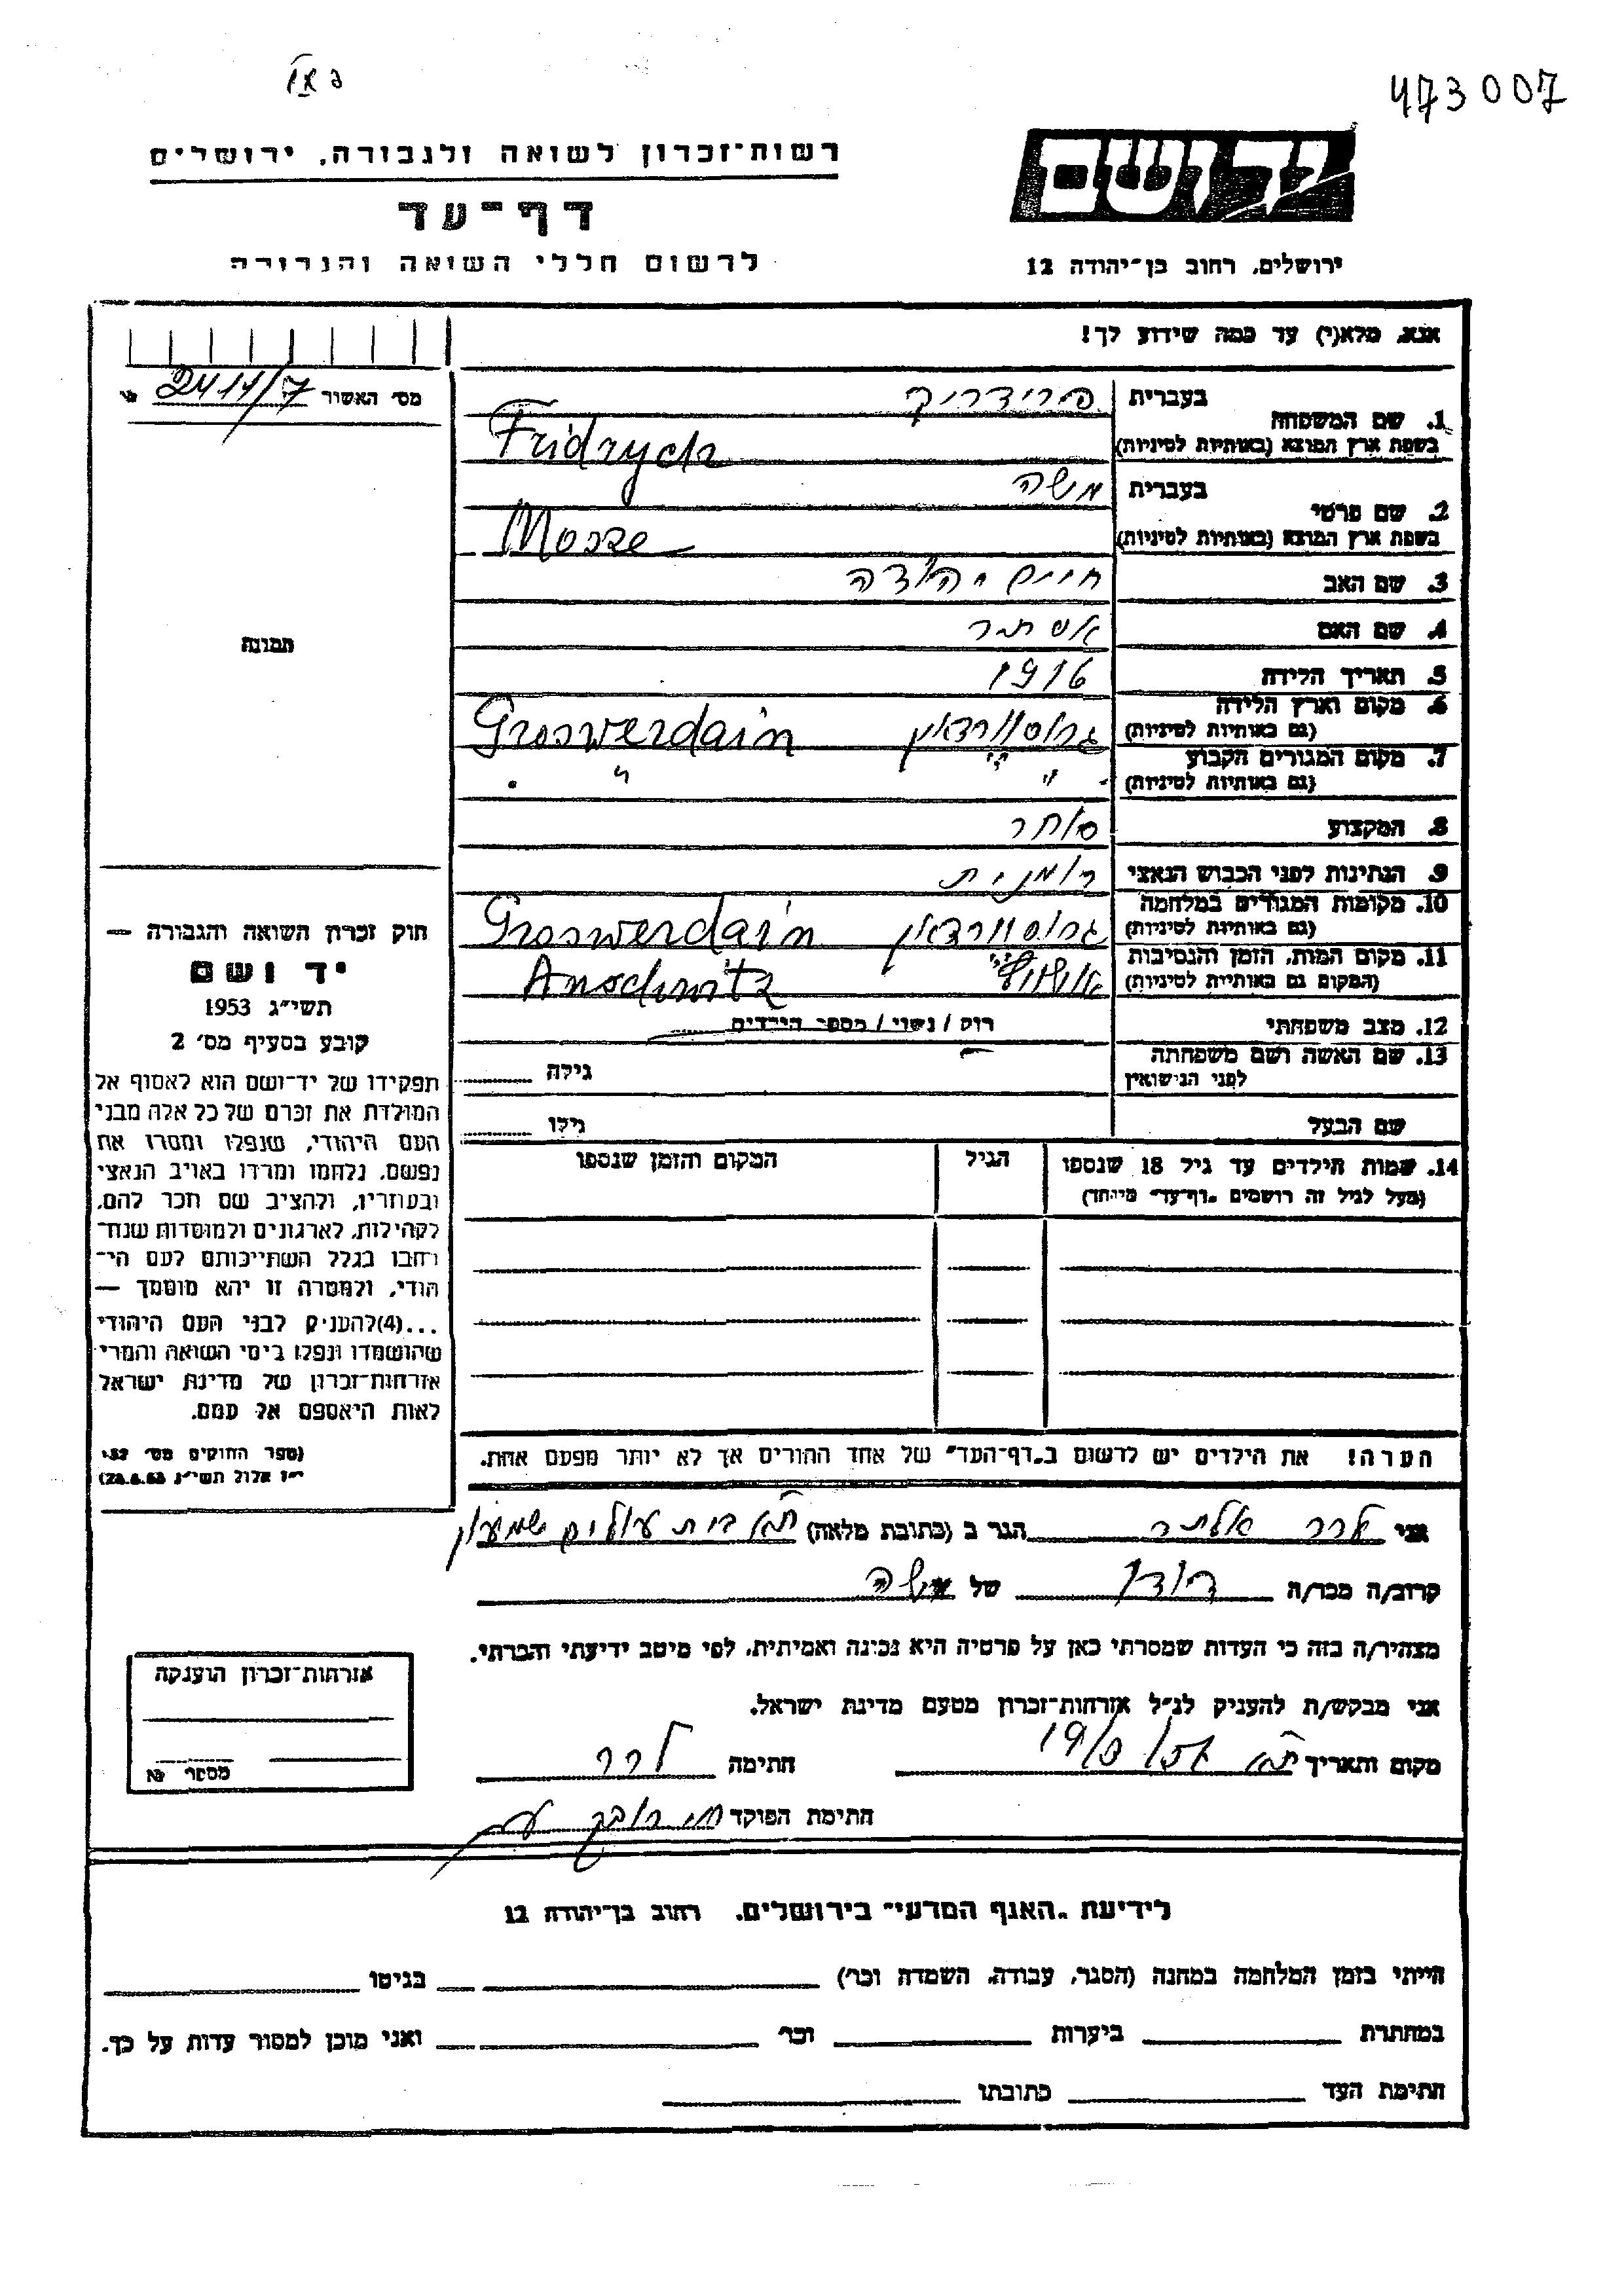 473007
רשות־זכרון לשואה ולגבורה, ירושלים
דף־עד
לרשום חללי השואה והגבורה
יד ושם
ירושלים, רחוב בן־יהודה 12
אנא, מלא(י) עד כמה שידוע לך!
מס׳ האשור 2411/7
1. שם המשפחה בעברית פרידריך
בשפת ארץ המוצא (באותיות לטיניות) Fridrych
2. שם פרטי בעברית משה
בשפת ארץ המוצא (באותיות לטיניות) Mosze
3. שם האב חיים יהודה
4. שם האם אסתר
5. תאריך הלידה 1916
6. מקום וארץ הלידה גרוסוורדאין Groswerdain
(גם באותיות לטיניות)
7. מקום המגורים הקבוע " "
(גם באותיות לטיניות)
8. המקצוע סוחר
9. הנתינות לפני הכבוש הנאצי רומנית
10. מקומות המגורים במלחמה גרוסוורדאין Groswerdain
(גם באותיות לטיניות)
11. מקום המות, הזמן והנסיבות אושוויץ Auschwitz
(המקום גם באותיות לטיניות)
12. מצב משפחתי רווק / נשוי / מספר הילדים
13. שם האשה ושם משפחתה גילה
לפני הנישואין
שם הבעל גילו
14. שמות הילדים עד גיל 18 שנספו הגיל המקום והזמן שנספו
(מעל לגיל זה רושמים "דף־עד" מיוחד)
הערה! את הילדים יש לרשום ב"דף־העד" של אחד ההורים אך לא יותר מפעם אחת.
תמונה
חוק זכרון השואה והגבורה —
יד ושם
תשי״ג 1953
קובע בסעיף מס׳ 2
תפקידו של יד־ושם הוא לאסוף אל
המולדת את זכרם של כל אלה מבני
העם היהודי, שנפלו ומסרו את
נפשם, נלחמו ומרדו באויב הנאצי
ובעוזריו, ולהציב שם וזכר להם,
לקהילות, לארגונים ולמוסדות שנח־
רבו בגלל השתייכותם לעם הי־
הודי, ולמטרה זו יהא מוסמך —
...(4)להעניק לבני העם היהודי
שהושמדו ונפלו בימי השואה והמרי
אזרחות־זכרון של מדינת ישראל
לאות היאספם אל עמם.
(ספר החוקים מס׳ 132,
י״ז אלול תשי״ג 28.8.53)
אני הגר ב (כתובת מלאה) בית עולים שמעון
קרוב/ה מכר/ה של משה
מצהיר/ה בזה כי העדות שמסרתי כאן על פרטיה היא נכונה ואמיתית, לפי מיטב ידיעתי והכרתי.
אני מבקש/ת להעניק לנ״ל אזרחות־זכרון מטעם מדינת ישראל.
מקום ותאריך חתימה
חתימת הפוקד
אזרחות־זכרון הוענקה
מספר №
לידיעת "האגף המדעי" בירושלים, רחוב בן־יהודה 12
הייתי בזמן המלחמה במחנה (הסגר, עבודה, השמדה וכו׳) בגיטו
במחתרת ביערות וכו׳ ואני מוכן למסור עדות על כך.
חתימת העד כתובתו